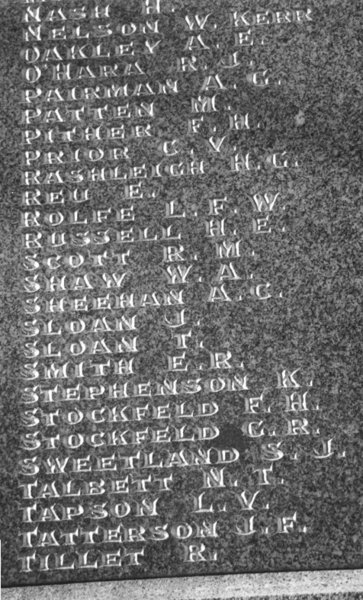 NASH H.
NELSON W. KERR
OAKLEY A. E.
O'HARA R. J.
PAIRMAN A. G.
PATTEN M.
PITHER F. H.
PRIOR C. V.
RASHLEIGH H. G.
REU E.
ROLFE L. F. W
RUSSELL H. E.
SCOTT R. M.
SHAW W. A.
SHEEHAN A. C.
SLOAN J.
SLOAN T.
SMITH E. R.
STEPHENSON K.
STOCKFELD F. H.
STOCKFELD G. R.
SWEETLAND S. J.
TALBETT N. T.
TAPSON L. V.
TATTERSON J. F.
TILLET R.